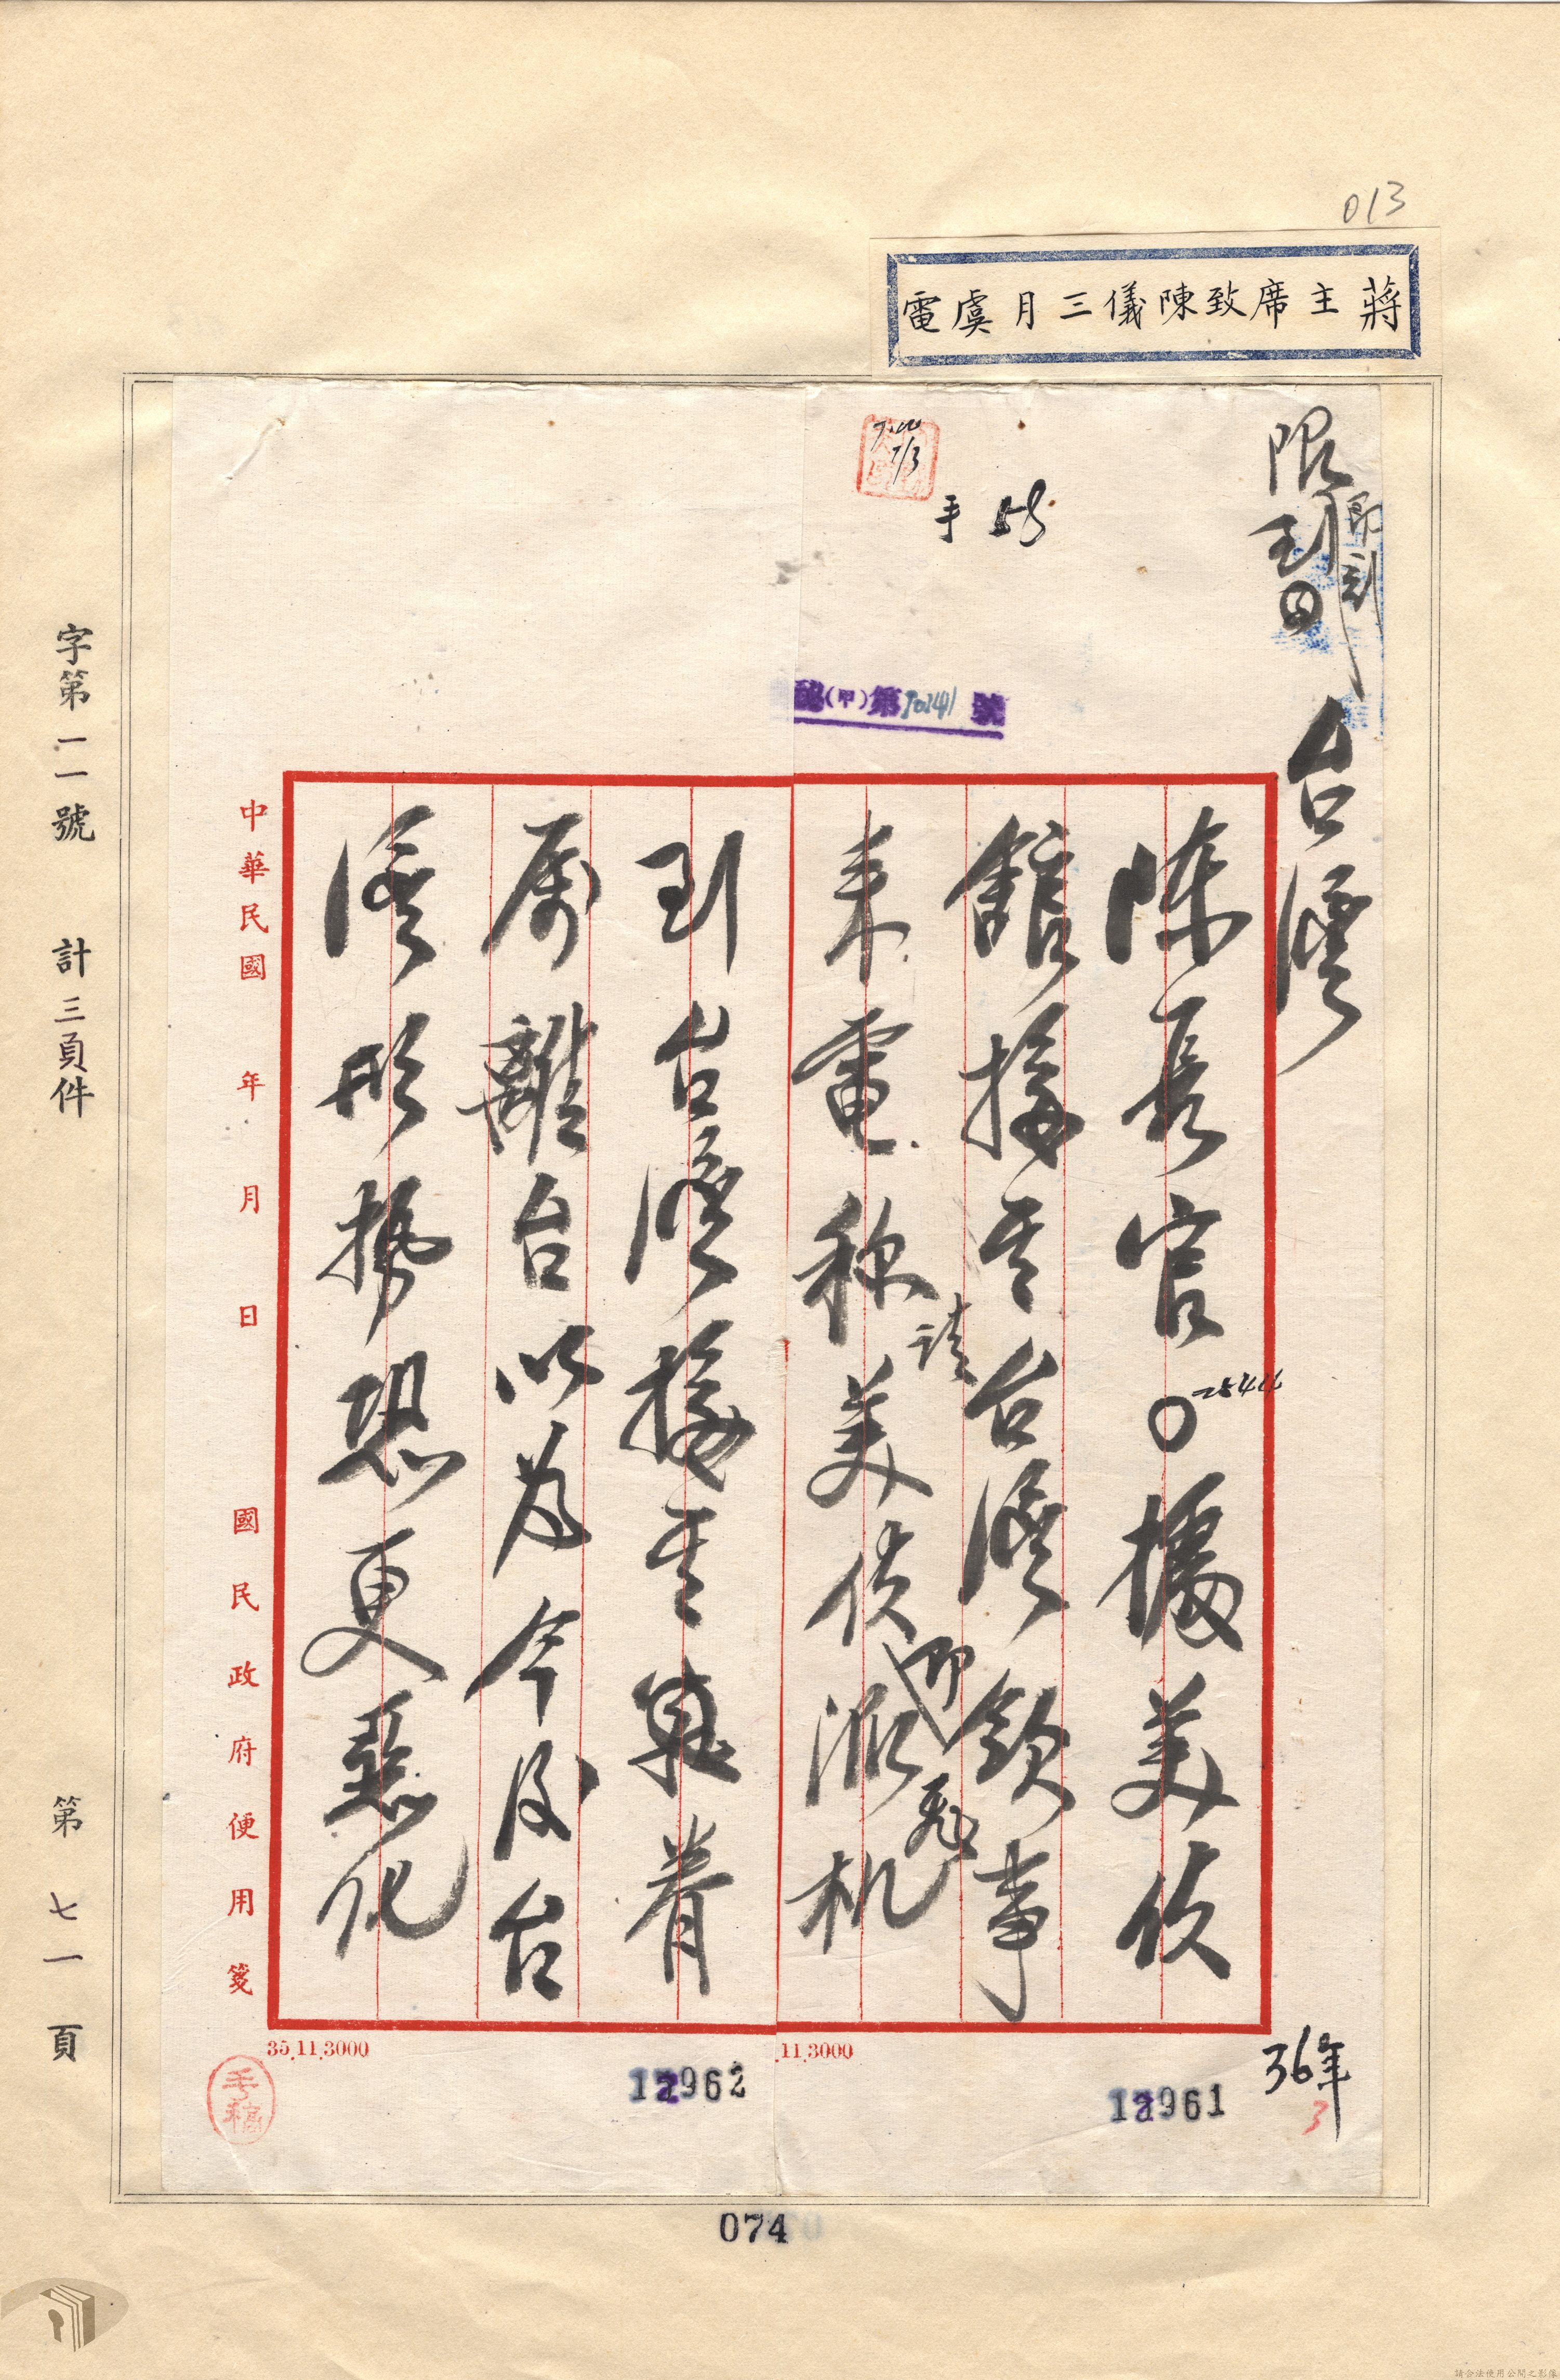 013
蔣主席致陳儀三月虞電
限即刻到
台灣
手
(甲)第10241號
陳長官。據美使
2544
館接其台灣領事
來電稱請美使即派飛機
到台灣接其眷
屬離台以為今後台
灣形勢恐更惡化
中華民國 年 月 日 國民政府便用箋
35.11.3000
.11.3000
12962
12961
36年
3
手稿
字第一一號 計三頁件 第七一頁
074
請合法使用公開之影像